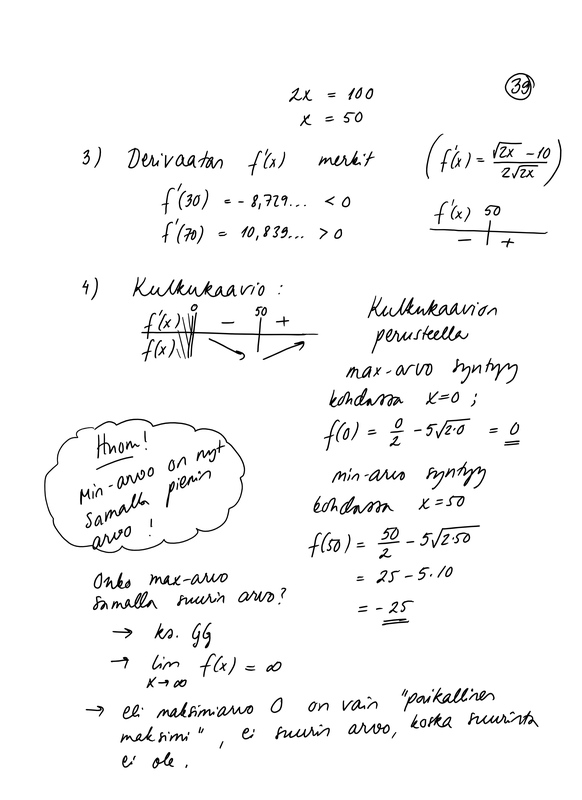 39
2x = 100
x = 50
3) Derivaatan f'(x) merkit
(f'(x) = (√2x - 10)/(2√2x))
f'(30) = - 8,729... < 0
f'(70) = 10,839... > 0
f'(x) 50
- +
4) Kulkukaavio :
0 50
f'(x) - +
f(x)
Kulkukaavion
perusteella
max-arvo syntyy
kohdassa x=0 ;
f(0) = 0/2 - 5√2·0 = 0
min-arvo syntyy
kohdassa x=50
f(50) = 50/2 - 5√2·50
= 25 - 5·10
= - 25
Huom!
Min-arvo on nyt
samalla pienin
arvo !
Onko max-arvo
samalla suurin arvo?
→ ks. GG
→ lim f(x) = ∞
x→∞
→ eli maksimiarvo 0 on vain "paikallinen
maksimi", ei suurin arvo, koska suurinta
ei ole.